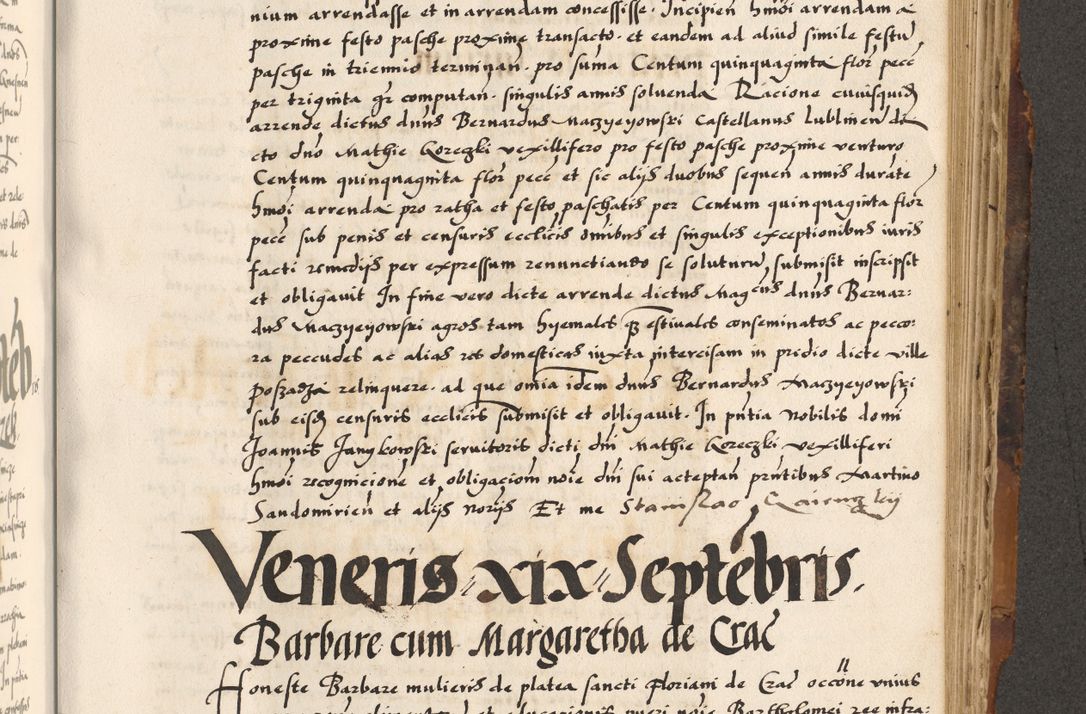 nium arrendasse et in arrendam concessisse. Incipien hmoi arrendam a
proxime festo pasche proxime transacto. et eandem ad aliud simile festu
pasche in triennio terminan. pro suma Centum quinquaginta flor pecc
per triginta gr computan. singulis annis solvenda Racione cuiusquid
arrende dictus dnus Bernardus Maczyeyowski Castellanus Lublinen di
cto dno Mathie Koreczki vexillifero pro festo pasche proxime venturo
Centum quinquaginta flor pecc et sic alijs duobus sequen annis durate
hmoi arrenda pro ratha et festo paschatis per Centum quinquaginta flor
pecc sub penis et censuris ecclicis omibus et singulis exceptionibus iuris
facti remedijs per expressum renunctiando se soluturu submisit inscripsit
et obligavit In fine vero dicte arrende dictus Magcus dnus Bernar:
dus Maczyeyowski agros tam hyemales q estivales conseminatos ac pecco:
ra peccudes ac alias res domesticas iuxta intercisam in predio dicte ville
Poszadza relinquere. ad que omia idem dnus Bernardus Maczyeyowski
sub eisd censuris ecclicis submisit et obligavit. In pntia Nobilis domi
Joannis Janykowski servitoris dicti dni Mathie Koreczki vexilliferi
hmoi recognicione et obligaciom noie dni sui acceptan pntibus Martino
Sandomirien et alijs Norijs Et me Stanislao
Veneris xix Septebris.
Barbare cum Margaretha de Crac
Honeste Barbare mulieris de platea sancti Floriani de Crac occone unius
et educacionis pueri noie Bartholomei ree infra: